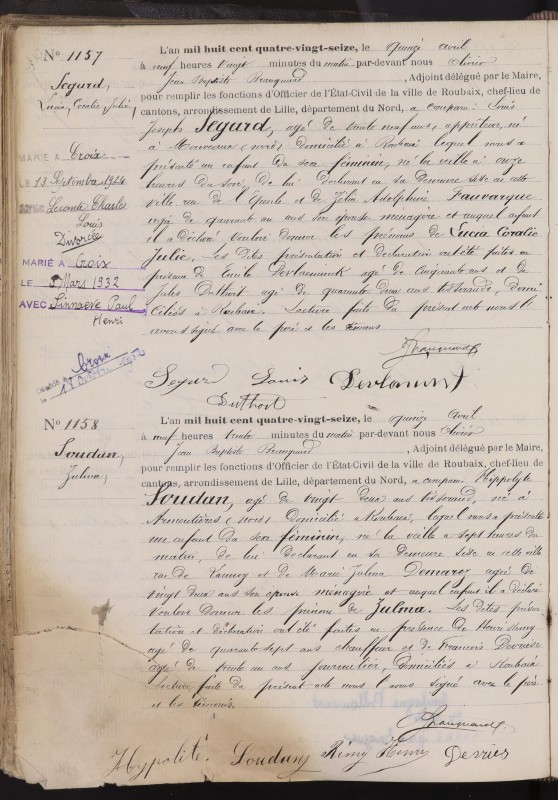 N° 1157
Segard,
Lucia, Coralie, Julie,
MARIÉ A Croix
LE 13 Septembre 1924
AVEC Leconte Charles
Louis
Divorcée
MARIÉ A Croix
LE Mars 1932
AVEC Sinnaeve Paul
Henri
Croix
L'an mil huit cent quatre-vingt-seize, le quinze avril
à neuf heures vingt minutes du matin par-devant nous Olivier
Jean Baptiste , Adjoint délégué par le Maire,
pour remplir les fonctions d'Officier de l'État-Civil de la ville de Roubaix, chef-lieu de
cantons, arrondissement de Lille, département du Nord, a comparu : Louis
Joseph Segard, agé de trente neuf ans, appréteur, né
à Mouveaux (nord) domicilié à Roubaix lequel nous a
présenté un enfant du sexe féminin, né la veille à onze
heures du soir, de lui déclarant en sa demeure sise en cette
ville rue de l' et de Zélia Adolphine Fauvarque
agée de quarante un ans son épouse ménagère et auquel enfant
il a déclaré vouloir donner les prénoms de Lucia Coralie
Julie. Les dites présentation et déclaration ont été faites en
présence de agé de cinquante ans et de
Jules Duthoit agé de quarante deux ans tisserands, domi-
ciliés à Roubaix. Lecture faite du présent acte nous l'
avons signé avec le père et les témoins
Segard Louis
Duthoit
N° 1158
Soudan,
Julma,
L'an mil huit cent quatre-vingt-seize, le quinze avril
à neuf heures trente minutes du matin par-devant nous Olivier
Jean Baptiste , Adjoint délégué par le Maire,
pour remplir les fonctions d'Officier de l'État-Civil de la ville de Roubaix, chef-lieu de
cantons, arrondissement de Lille, département du Nord, a comparu : Hippolyte
Soudan, agé de vingt deux ans tisserand, né à
Armentières (nord) domicilié à Roubaix, lequel nous a présenté
un enfant du sexe féminin, né la veille à sept heures du
matin, de lui déclarant en sa demeure sise en cette ville
rue de Lannoy et de Marie Julma Demarez agée de
vingt deux ans son épouse ménagère et auquel enfant il a déclaré
vouloir donner les prénom de Julma. Les dites présen-
tation et déclaration ont été faites en présence de Henri Remy
agé de quarante sept ans chauffeur et de François
agé de trente un ans journalier, domiciliés à Roubaix
Lecture faite du présent acte nous l'avons signé avec le père
et les témoins.
Hypolite Soudan Rémy Henri